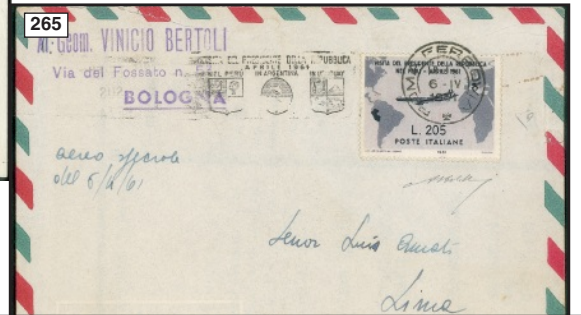 265
Al Geom. VINICIO BERTOLI
Via del Fossato n.
BOLOGNA
VISITA DEL PRESIDENTE DELLA REPUBBLICA
APRILE 1961
NEL PERÙ IN ARGENTINA IN URUGUAY
VISITA DEL PRESIDENTE DELLA REPUBBLICA
NEL PERU - APRILE 1961
ROMA FERROVIA
6-IV
1961
L. 205
POSTE ITALIANE
aereo speciale
del 6/4/61
Senor Luis Amati
Lima